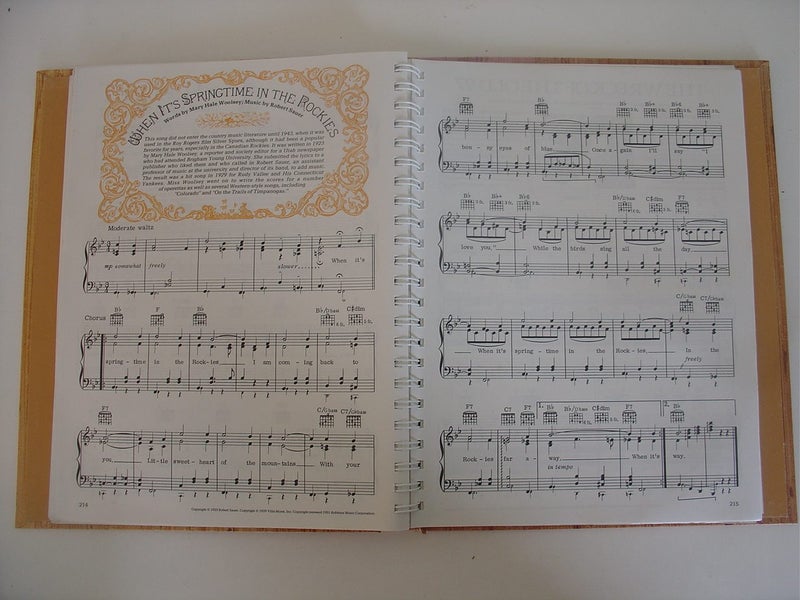 WHEN IT'S SPRINGTIME IN THE ROCKIES
Words by Mary Hale Woolsey; Music by Robert Sauer
This song did not enter the country music literature until 1942, when it was
used in the Roy Rogers film Silver Spurs, although it had been a popular
favorite for years, especially in the Canadian Rockies. It was written in 1923
by Mary Hale Woolsey, a reporter and society editor for a Utah newspaper
who had attended Brigham Young University. She submitted the lyrics to a
publisher who liked them and who called on Robert Sauer, an assistant
professor of music at the university and director of its band, to add music.
The result was a hit song in 1929 for Rudy Vallee and His Connecticut
Yankees. Miss Woolsey went on to write the scores for a number
of operettas as well as several Western-style songs, including
"Colorado" and "On the Trails of Timpanogas."
Moderate waltz
mp somewhat freely slower When it's
Chorus B♭ F B♭ B♭/Dbass C♯dim
spring-time in the Rock-ies I am com-ing back to
F7 C/Gbass C7/Gbass
you, Lit-tle sweet-heart of the moun-tains With your
214
F7 B♭ B♭ B♭+ B♭6 B♭+
bon-ny eyes of blue Once a-gain I'll say "I
B♭ B♭+ B♭6 B♭/Dbass C♯dim F7
love you," While the birds sing all the day
C/Gbass C7/Gbass
When it's spring-time in the Rock-ies, In the
freely
F7 C7 F7 1. B♭ B♭/Dbass C♯dim F7 2. B♭
Rock-ies far a-way. When it's way.
in tempo
215